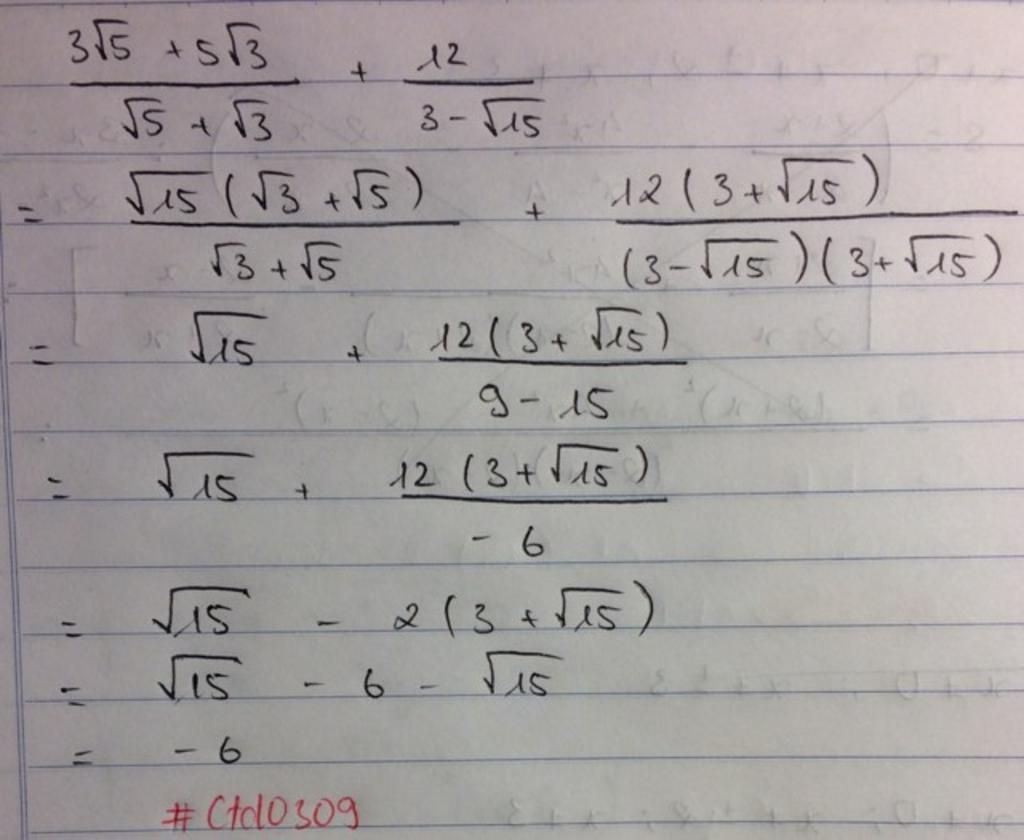 (3√5 + 5√3)/(√5 + √3) + 12/(3 - √15)
= √15(√3 + √5)/(√3 + √5) + 12(3 + √15)/((3 - √15)(3 + √15))
= √15 + 12(3 + √15)/(9 - 15)
= √15 + 12(3 + √15)/(-6)
= √15 - 2(3 + √15)
= √15 - 6 - √15
= -6
#Ctd0309